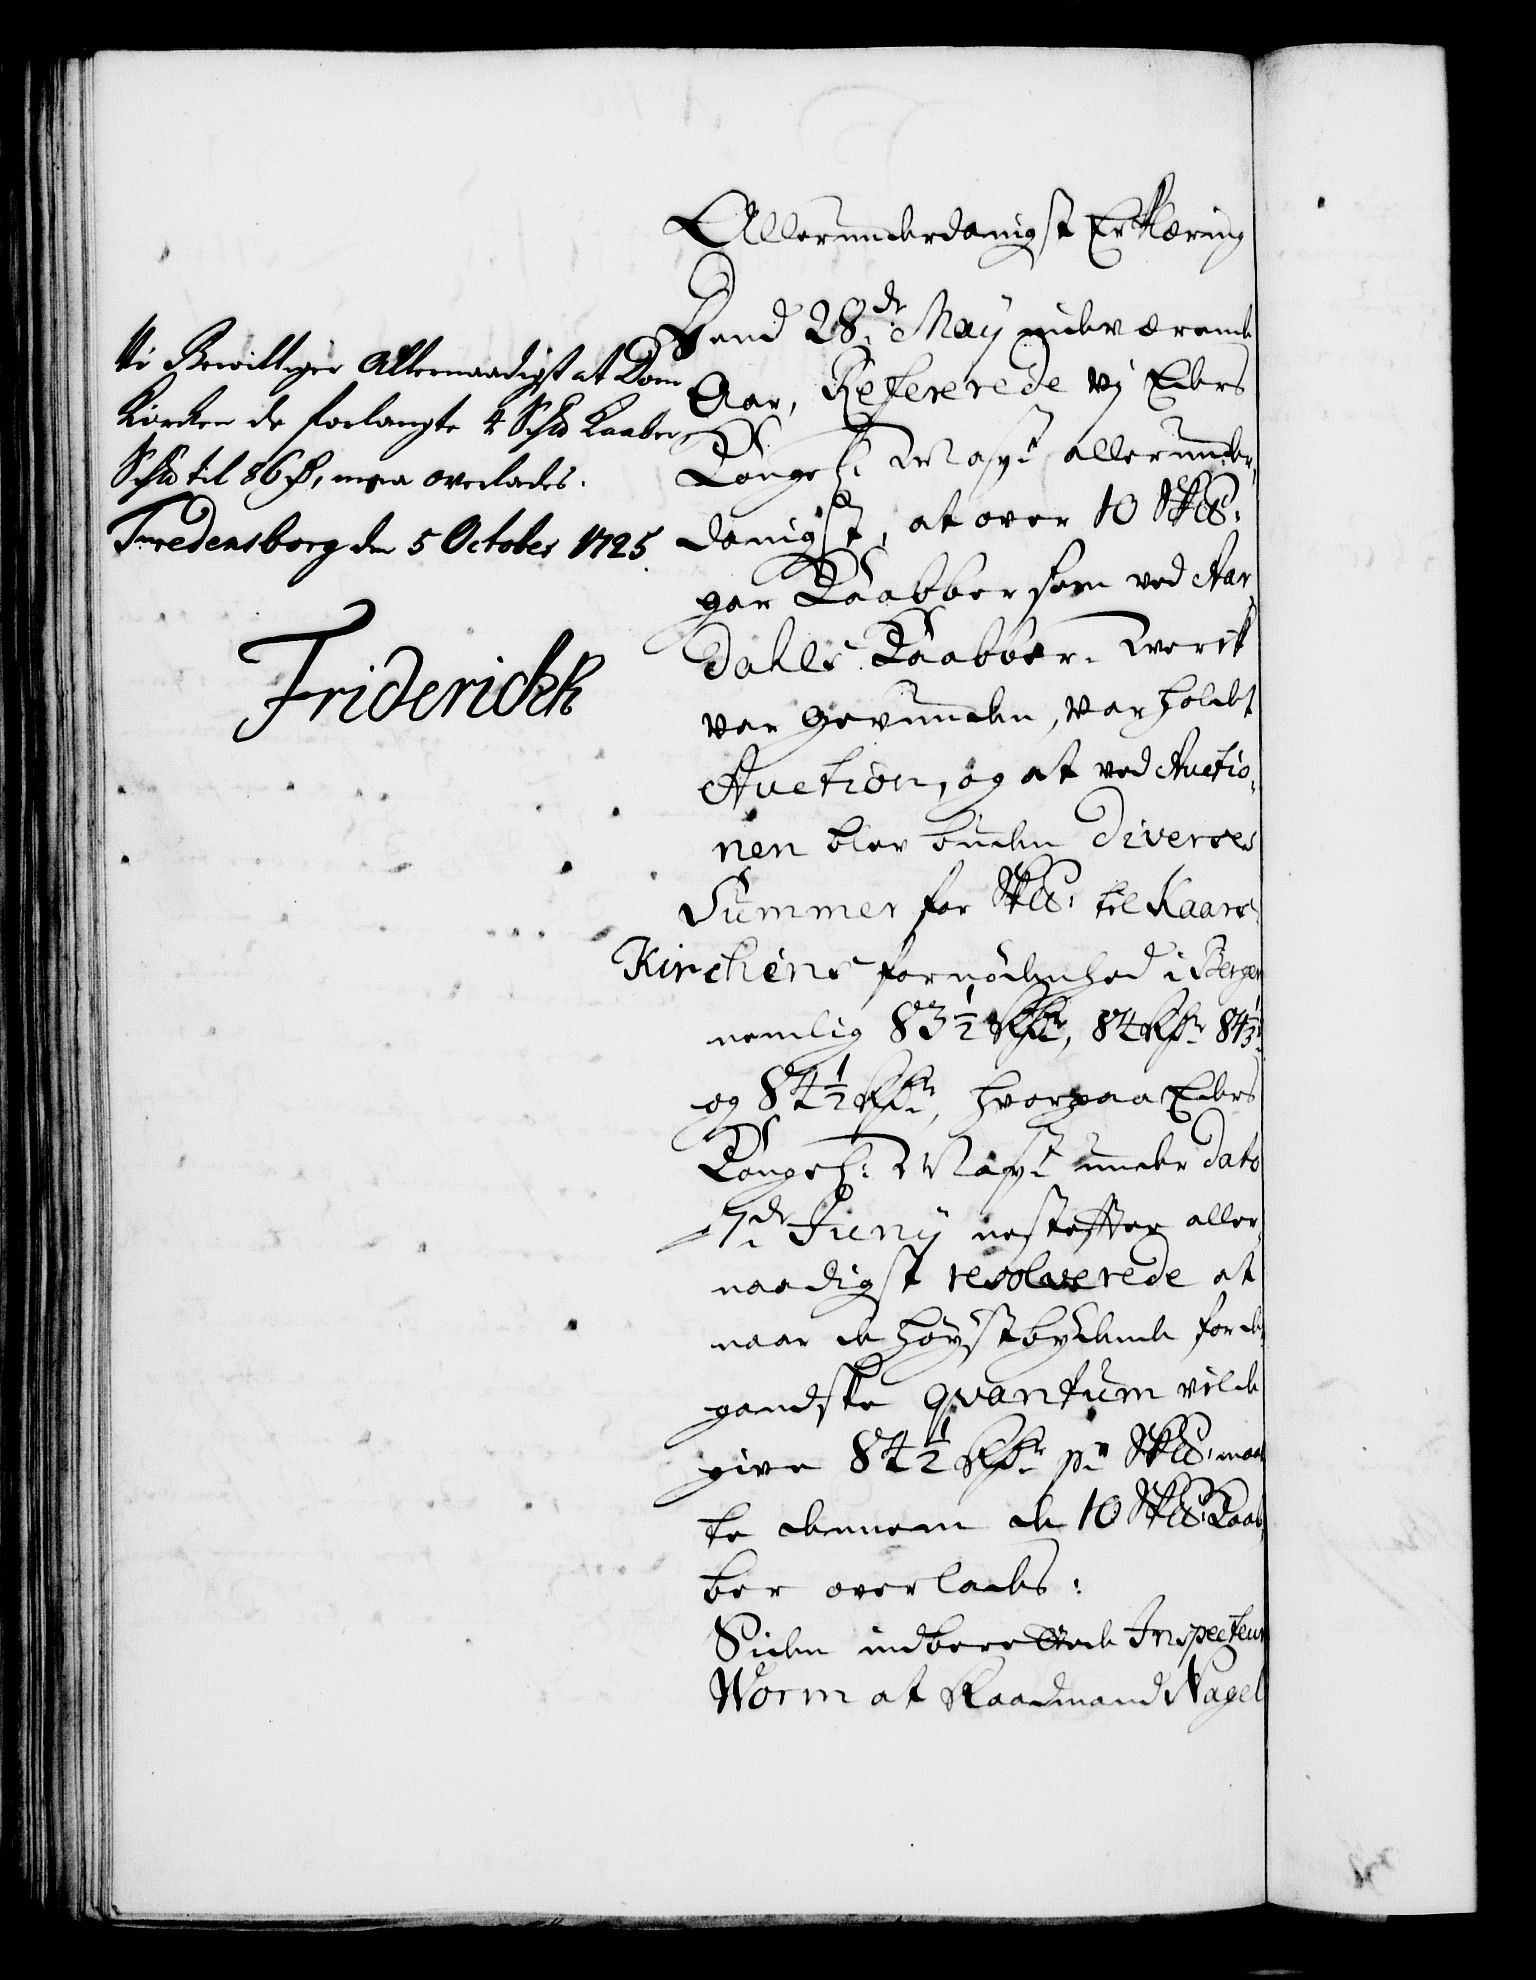 Vi Bewilliger Allernaadigst at Dom
Kircken de forlangte 4 S℔ Kaaber
S℔ til 86 Rd, maa overlades.
Fredensborg den 5 October 1725.
Friderich R
Allerunderdanigst Erklæring
Dend 28de May indeværende
Aar, Refererede vj Eders
Kongel: Mayt allerunder,
danigst, at over 10 Sk℔:
gar Kaabber som ved Aar,
dahls Kaabber-Werck
var gevunden, var holdet
Auction, og at ved Auctio,
nen blev buden diverses
Summer for Sk℔: til Kaars
Kirchens fornødenhed i Bergen
nemlig 83½ Rdr, 84 Rdr 84⅓
og 84½ Rdr, hvorpaa Eders
Kongel: Mayt under dato
7de Juny nestefter aller,
naadigst resolverede at
naar de høystbydende for det
gandske qvantum vilde
give 84½ Rdr pr Sk℔: maa
te dennem de 10 Sk℔: Kaab,
ber overlades:
Siden indberettede Inspecteur
Worm at Raadmand Nagel